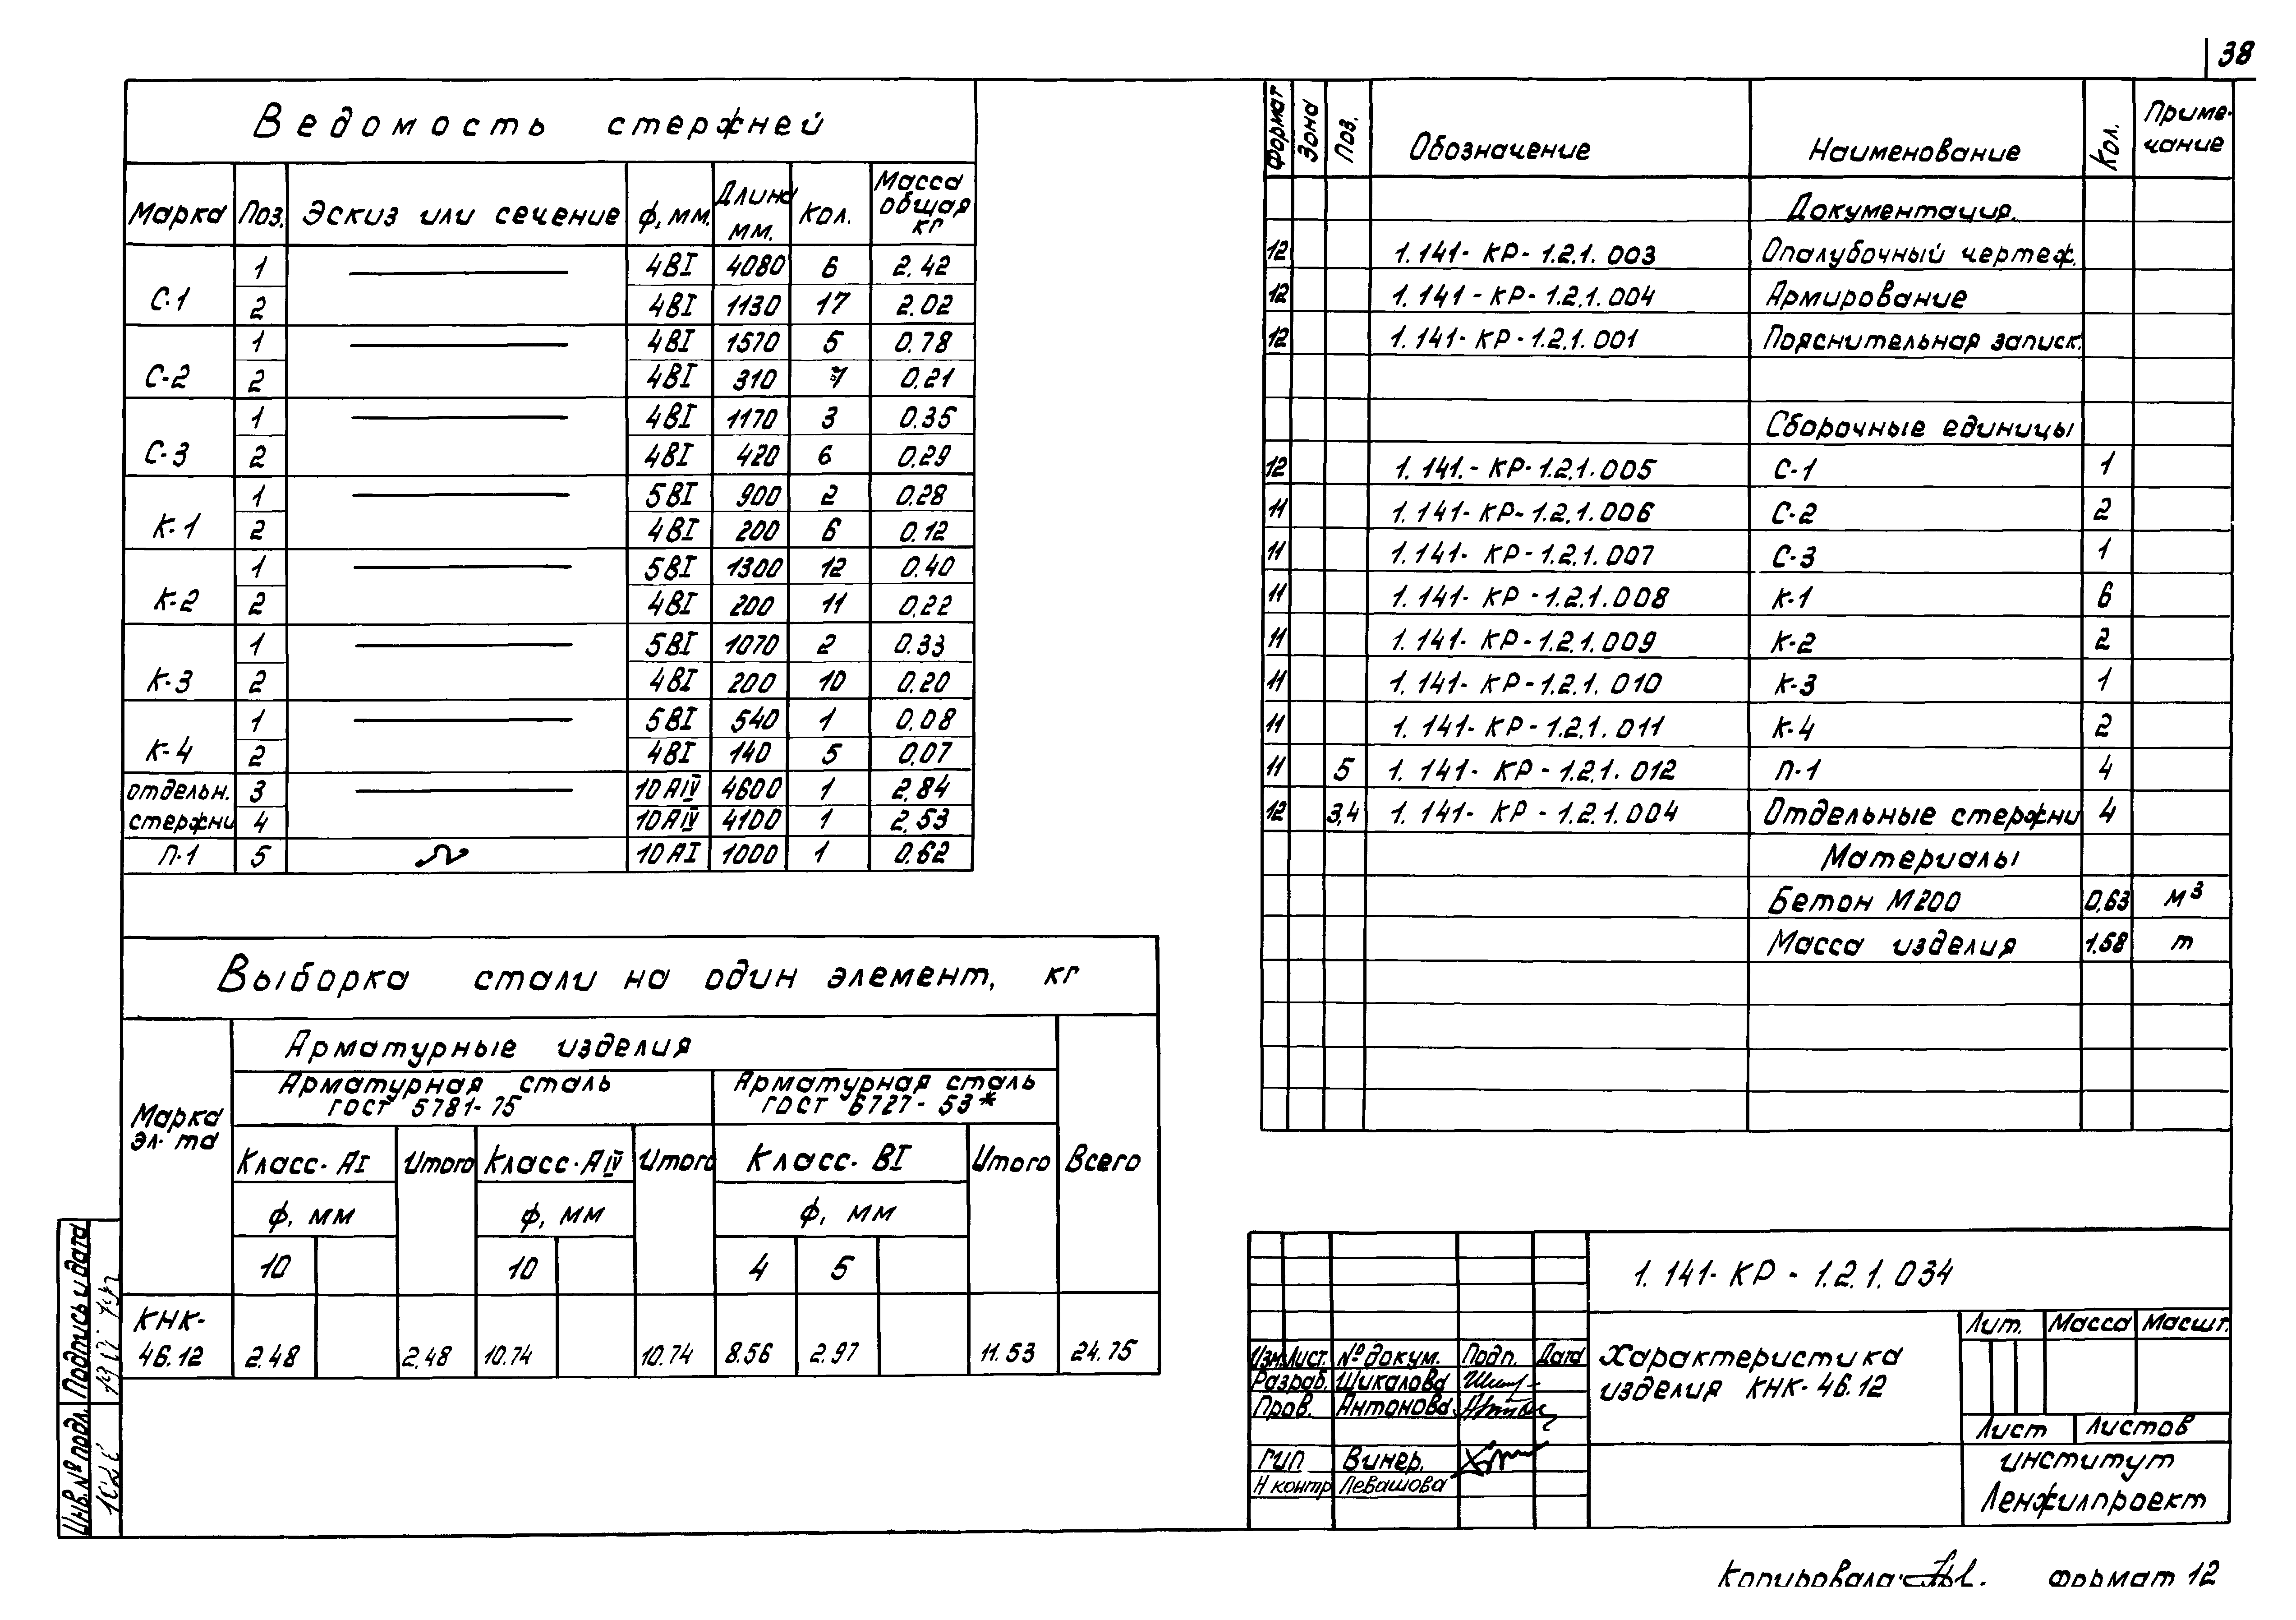 38
Ведомость стержней
Марка Поз. Эскиз или сечение ф, мм. Длина мм. Кол. Масса общая кг
С-1 1 4ВI 4080 6 2.42
2 4ВI 1130 17 2.02
С-2 1 4ВI 1570 5 0.78
2 4ВI 310 7 0.21
С-3 1 4ВI 1170 3 0.35
2 4ВI 420 6 0.29
К-1 1 5ВI 900 2 0.28
2 4ВI 200 6 0.12
К-2 1 5ВI 1300 12 0.40
2 4ВI 200 11 0.22
К-3 1 5ВI 1070 2 0.33
2 4ВI 200 10 0.20
К-4 1 5ВI 540 1 0.08
2 4ВI 140 5 0.07
отдельн. 3 10АIV 4600 1 2.84
стержни 4 10АIV 4100 1 2.53
П-1 5 10АI 1000 1 0.62
Выборка стали на один элемент, кг
Марка эл-та
Арматурные изделия
Арматурная сталь ГОСТ 5781-75
Арматурная сталь ГОСТ 6727-53*
Класс-АI Итого Класс-АIV Итого Класс-ВI Итого Всего
ф, мм ф, мм ф, мм
10 10 4 5
КНК-
46.12 2.48 2.48 10.74 10.74 8.56 2.97 11.53 24.75
Формат Зона Поз. Обозначение Наименование Кол. Приме-чание
Документация.
12 1.141-КР-1.2.1.003 Опалубочный чертеж.
12 1.141-КР-1.2.1.004 Армирование
12 1.141-КР-1.2.1.001 Пояснительная записк.
Сборочные единицы
12 1.141.-КР-1.2.1.005 С-1 1
11 1.141-КР-1.2.1.006 С-2 2
11 1.141-КР-1.2.1.007 С-3 1
11 1.141-КР-1.2.1.008 К-1 6
11 1.141-КР-1.2.1.009 К-2 2
11 1.141-КР-1.2.1.010 К-3 1
11 1.141-КР-1.2.1.011 К-4 2
11 5 1.141-КР-1.2.1.012 П-1 4
12 3,4 1.141-КР-1.2.1.004 Отдельные стержни 4
Материалы
Бетон М200 0,63 м³
Масса изделия 1.58 т
1.141-КР-1.2.1.034
Изм. Лист. № докум. Подп. Дата
Разраб. Шикалова
Пров. Антонова
ГИП Винер.
Н контр Левашова
Характеристика
изделия КНК-46.12
Лит. Масса Масшт.
Лист Листов
институт
Ленжилпроект
Инв.№ подл. Подпись и дата
Копировала- Формат 12